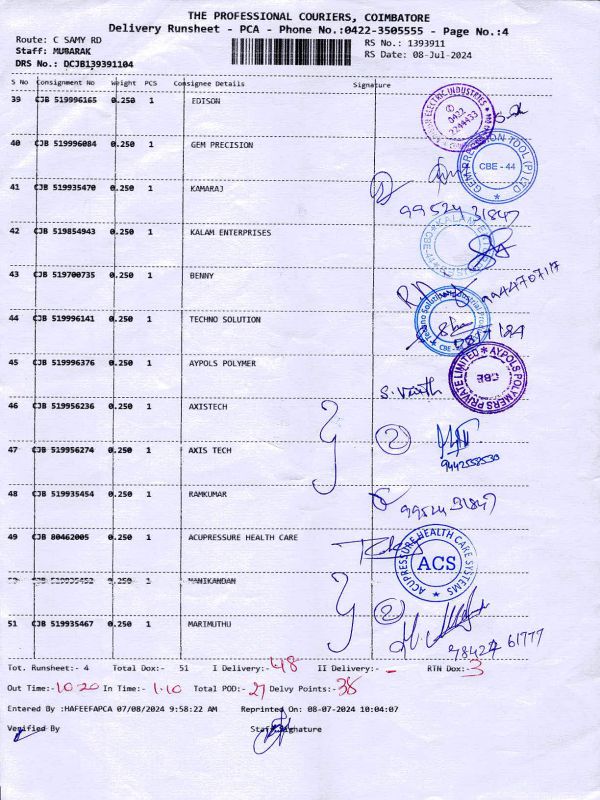 THE PROFESSIONAL COURIERS, COIMBATORE
Delivery Runsheet - PCA - Phone No.:0422-3505555 - Page No.:4
Route: C SAMY RD
RS No.: 1393911
Staff: MUBARAK
RS Date: 08-Jul-2024
DRS No.: DCJB139391104
S No Consignment No Weight PCS Consignee Details Signature
39 CJB 519996165 0.250 1 EDISON
ELECTRIC INDUSTRIES
0422
2244433
40 CJB 519996084 0.250 1 GEM PRECISION
GEM PRECISION TOOL (P) LTD
CBE - 44
41 CJB 519935470 0.250 1 KAMARAJ
99524 31847
42 CJB 519854943 0.250 1 KALAM ENTERPRISES
KALAM
CBE-44
43 CJB 519700735 0.250 1 BENNY
9944707117
44 CJB 519996141 0.250 1 TECHNO SOLUTION
Techno Solution
CBE
45 CJB 519996376 0.250 1 AYPOLS POLYMER
AYPOLS POLYMERS PRIVATE LIMITED
CBE
46 CJB 519956236 0.250 1 AXISTECH
2
9442558530
47 CJB 519956274 0.250 1 AXIS TECH
48 CJB 519935454 0.250 1 RAMKUMAR
99524 31847
49 CJB 80462005 0.250 1 ACUPRESSURE HEALTH CARE
ACUPRESSURE HEALTH CARE SYSTEMS
ACS
CJB 519935452 0.250 1 MANIKANDAN
2
51 CJB 519935467 0.250 1 MARIMUTHU
98427 61777
Tot. Runsheet:- 4 Total Dox:- 51 I Delivery:- 48 II Delivery:- - RTN Dox:- 3
Out Time:- 10.20 In Time:- 1.10 Total POD:- 27 Delvy Points:- 38
Entered By :HAFEEFAPCA 07/08/2024 9:58:22 AM Reprinted On: 08-07-2024 10:04:07
Verified By Staff Signature